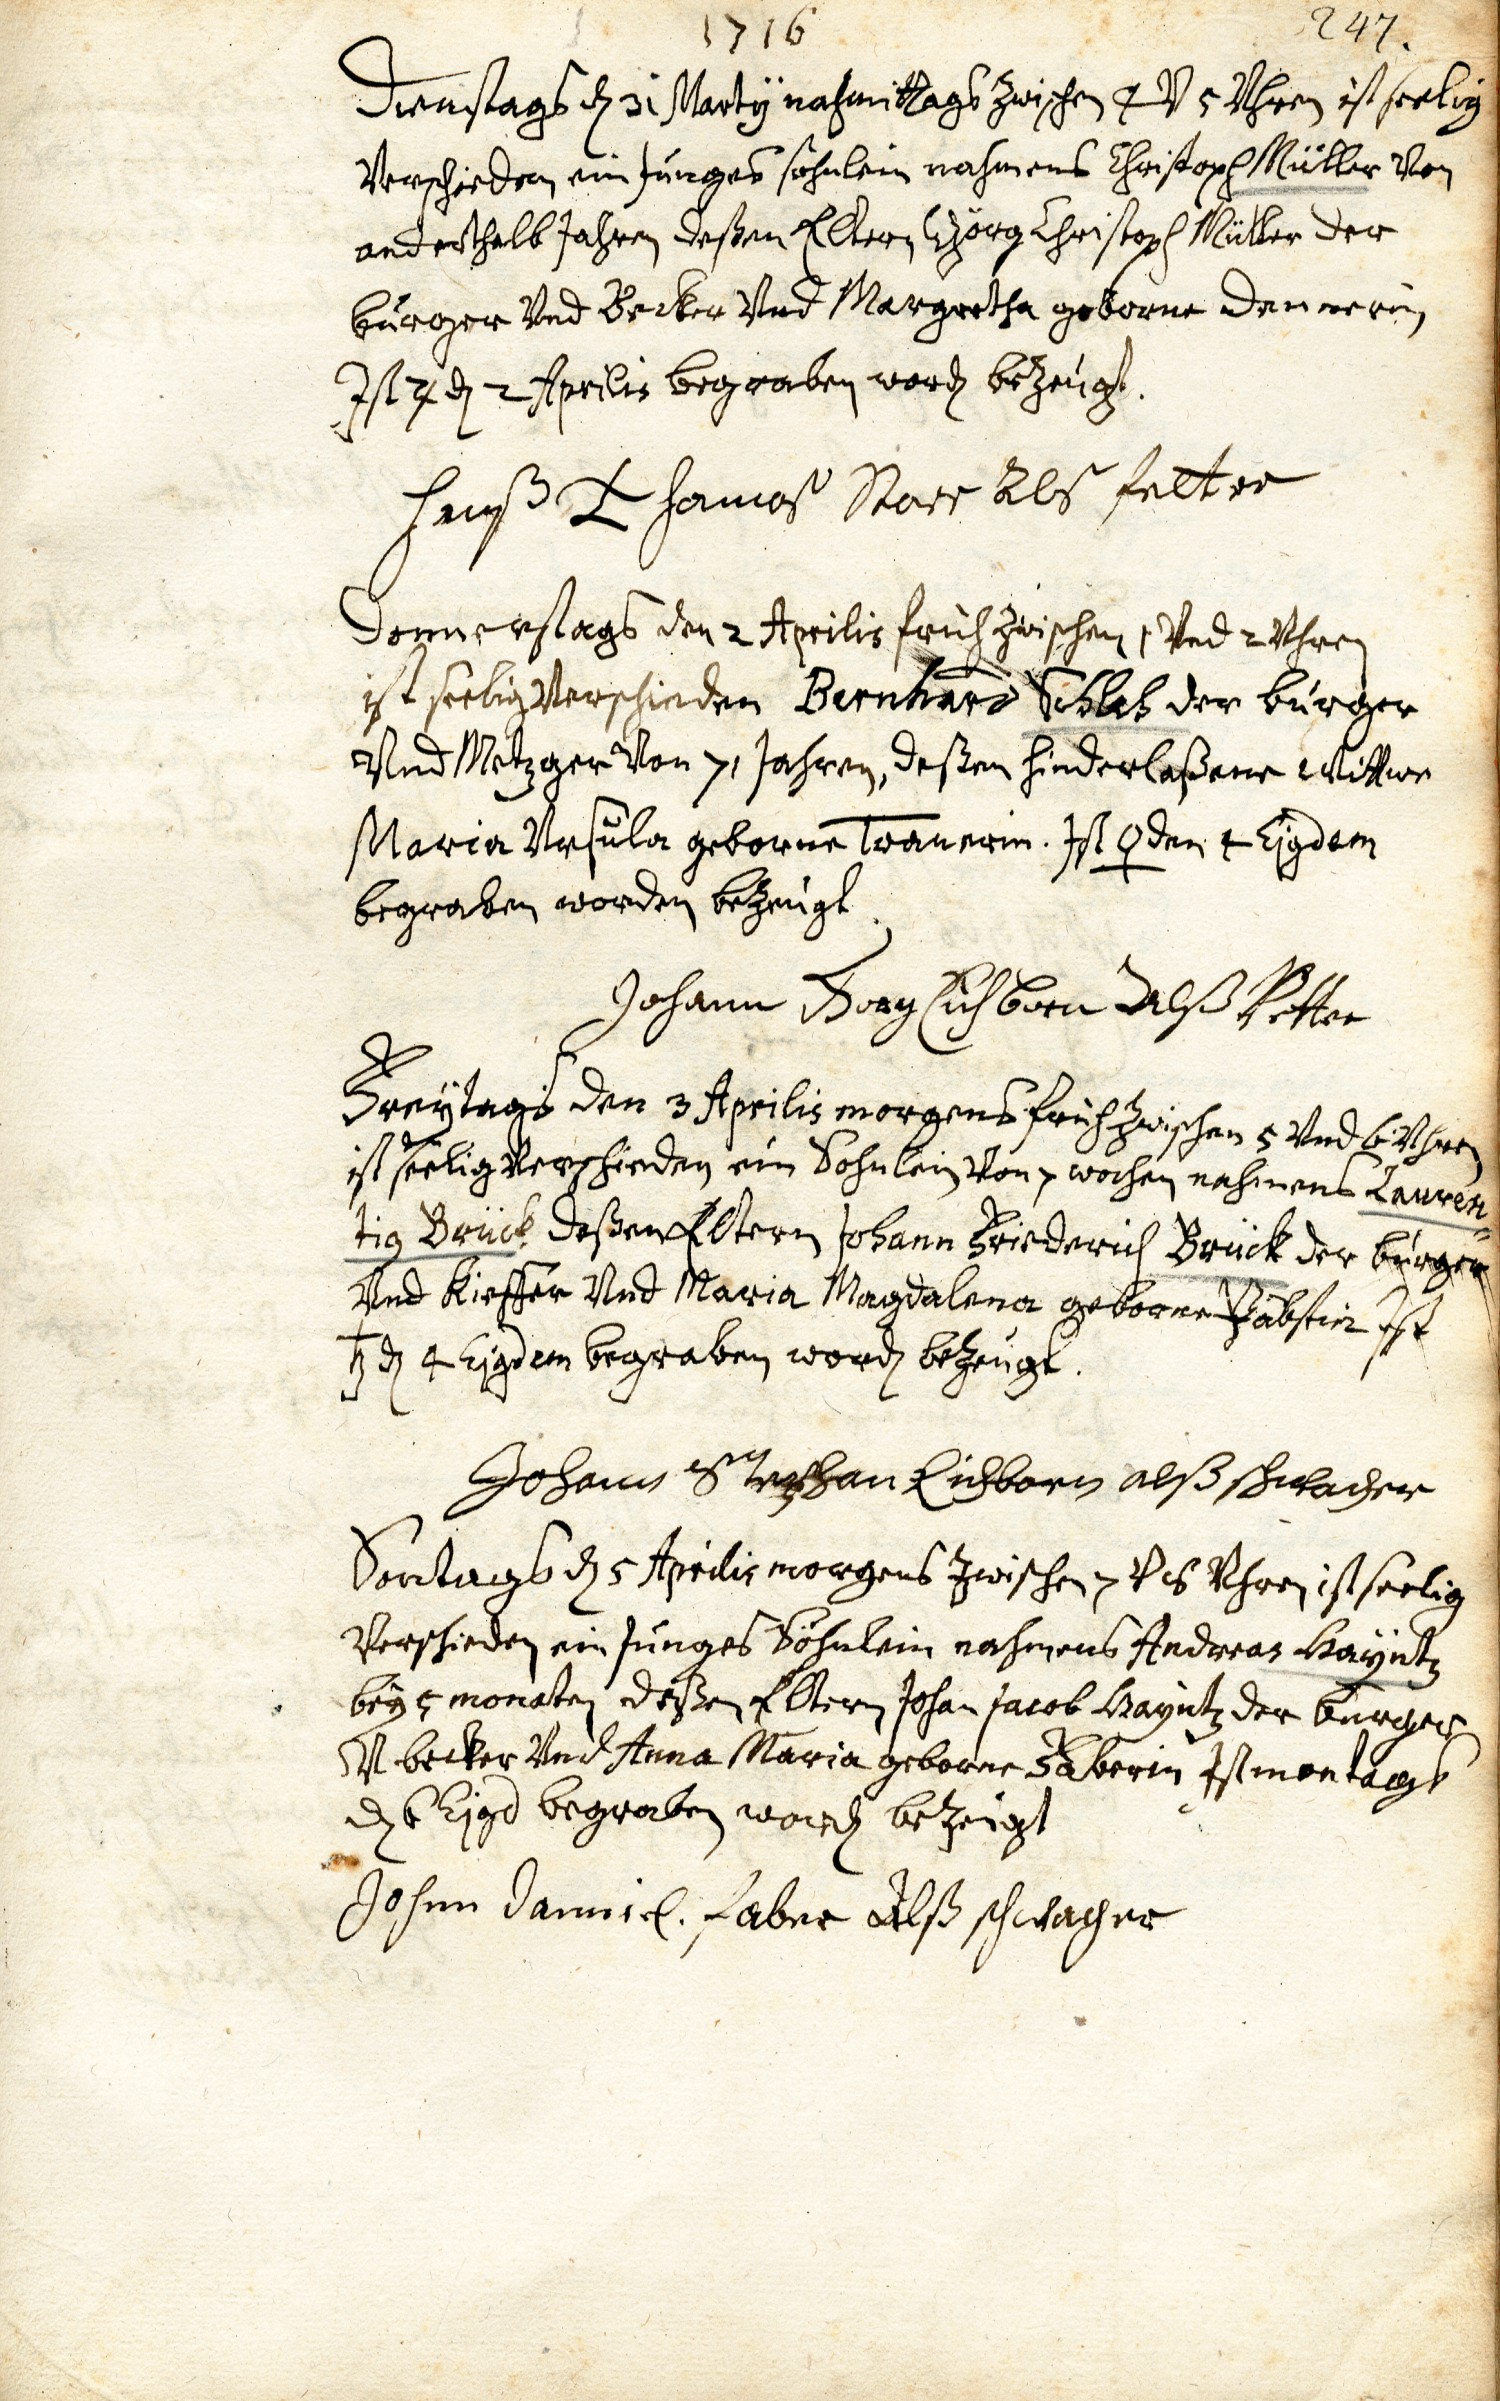 1716
247.
Dienstags dẽ 31 Martÿ nachmittags zwischen 4 V 5 Vhren ist seelig
Verschieden ein junges söhnlein nahmens Christoph Müller Von
anderthalb Jahren deßen Eltern Görg Christoph Müller der
burger Vnd Becker Vnd Margretha geborne Dennerin
Ist ♃ dẽ 2 Aprilis begraben word bezeugt.
Hanß Thamas Starr Als fetter
Donnerstags den 2 Aprilis früh zwischen 1 Vnd 2 Vhren
ist seelig Verschieden Bernhard der burger
Vnd Metzger Von 71 Jahren, deßen hinderlaßene Wittwe
Maria Vrsula geborne Trauerin. Ist ♀ den 4 Ejgdem
begraben worden bezeugt
Johann Görg Eichborn Alß Vetter
Freytags den 3 Aprilis morgens früh zwischen 5 Vnd 6 Vhren
ist seelig Verschieden ein Sohnlein Von 7 wochen nahmens Lauren=
tig Brück deßen Eltern Johann Friederich Brück der burger
Vnd Kieffer Vnd Maria Magdalena geborne Päbstin Ist
♄ dẽ 4 Ejgdem begraben word bezeugt.
Johann Stephan Eichborn alß schwacher
Sontags dẽ 5 Aprilis morgens zwischen 7 V 8 Vhren ist seelig
Verschieden ein junges Söhnlein nahmens Andreas Hayntz
bey 5 monaten deßen Eltern Johan Jacob Hayntz der burger
V becker Vnd Anna Maria geborne Faberin Ist montags
dẽ 6 Ejgd begraben word bezeugt
Johan Danniel. faber Alß schwacher